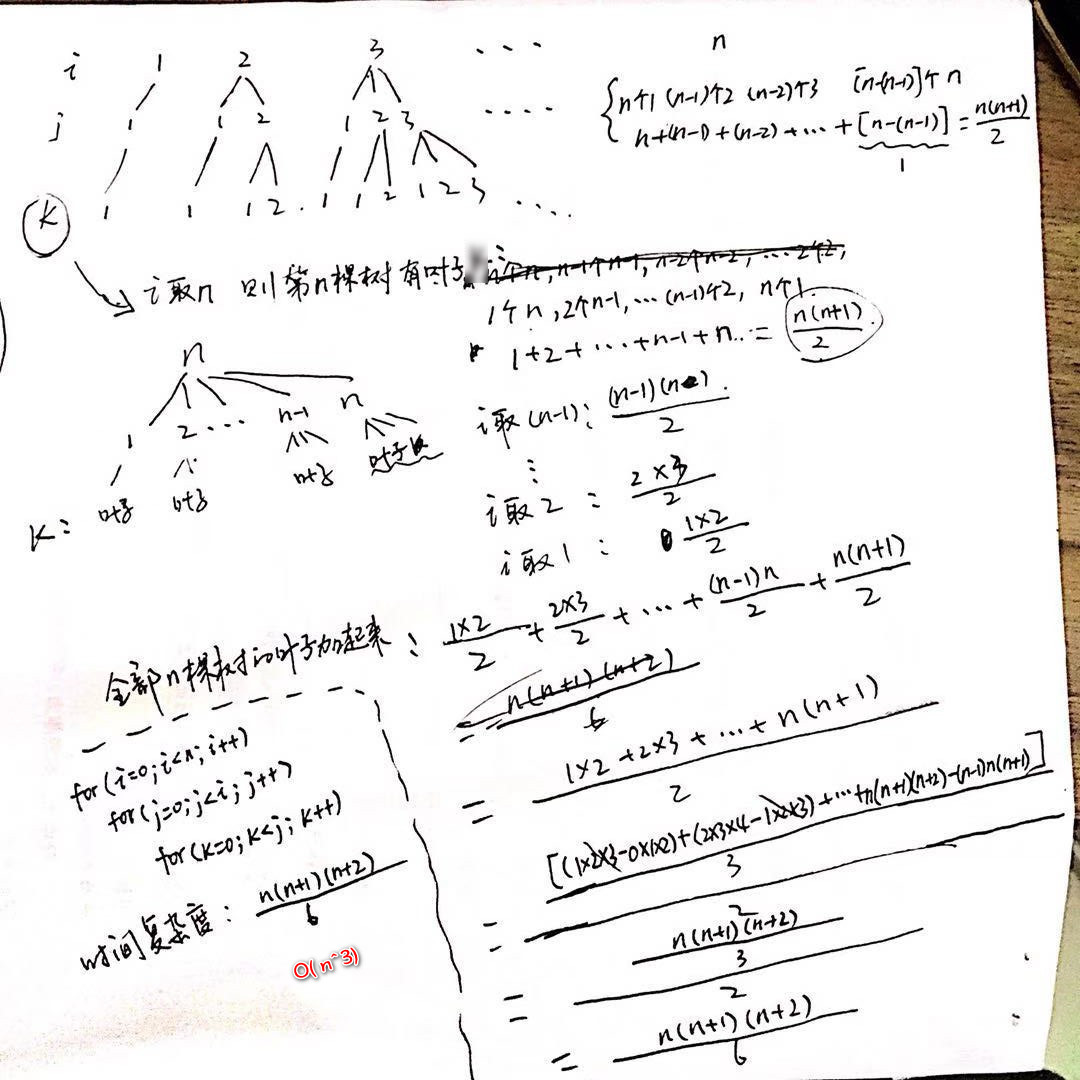 i 1 2 3 .... n
j 1 1 2 1 2 3 ....
k 1 1 1 2 . 1 1 2 1 2 3 ....
n个1 (n-1)个2 (n-2)个3 [n-(n-1)]个n
n+(n-1)+(n-2)+…+[n-(n-1)]=n(n+1)/2
1
i取n 则第n棵树有叶子
n个n, n-1个n-1, n-2个n-2, …2个2,
1个n, 2个n-1, … (n-1)个2, n个1.
1+2+…+n-1+n..= n(n+1)/2.
n
1 2 … n-1 n
K: 叶子 叶子 叶子 叶子k
i取(n-1): (n-1)(n)/2.
⋮
i取2 : 2×3/2
i取1 : 1×2/2
全部n棵树的叶子加起来: 1×2/2+2×3/2+…+(n-1)n/2+n(n+1)/2
= n(n+1)(n+2)/6
= 1×2+2×3+…+n(n+1)/2
= [(1×2×3-0×1×2)+(2×3×4-1×2×3)+…+n(n+1)(n+2)-(n-1)n(n+1)]/3/2
= n(n+1)(n+2)/3/2
= n(n+1)(n+2)/6
for(i=0;i<n;i++)
for(j=0;j<i;j++)
for(k=0;k<j;k++)
时间复杂度: n(n+1)(n+2)/6
O(n^3)